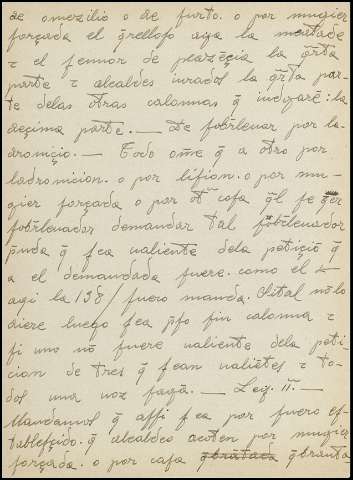 de omezilio o de furto. o por mugier
forçada el q̄relloso aya la meatade
τ el sennor de palaçio la q̄rta
parte τ alcaldes iurados la q̄rta par-
te delas otras calonnas q̄ : la
deçima parte. — De sobrleuar por la-
droniçio. — Todo om̄e q̄ a otro por
ladronicion. o por lision. o por mu-
gier forçada o por ot̄ cosa q̄l
sobrleuador demandar tal sobrleuador
p̄nda q̄ sea ualiente dela petiçio q̄
a el demandada fuere. como el
aqi la 138/ fuero manda. Si tal nōlo
diere luego sea p̄so sin calonna τ
si uno nō fuere ualiente dela peti-
cion de tres q̄ sean ualiētes τ to-
dos una uoz fagā. — Ley. II. —
Mandamos q̄ assi sea por fuero es-
tablesçido. q̄ alcaldes acoten por mugier
forçada. o por casa q̄brātada q̄branta-